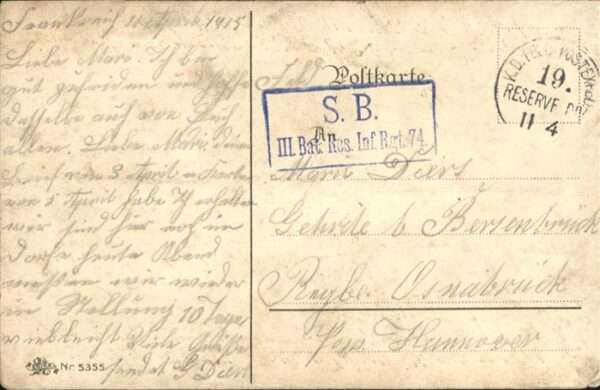 Frankreich 10 April 1915
Liebe Mari. Ich bin
gut zufrieden und hoffe
dasselbe auch von Euch
allen. Liebe Mari, deinen
Brief vom 3 April u Karte
vom 5 April habe Ich erhalten
wir sind hir noch im
Dorfe heute Abend
müssen wir wieder
in Stellung 10 Tage
vielleicht Viele Grüße
sendet G Diers
Nr. 5355
Feld Postkarte
S. B.
An
III. Bat. Res. Inf. Rgt. 74
K.D. FELD-POSTEXP.
19.
RESERVE
11 4
Marie Diers
Gehrde b Bersenbrück
Regbz. Osnabrück
Prov Hannover